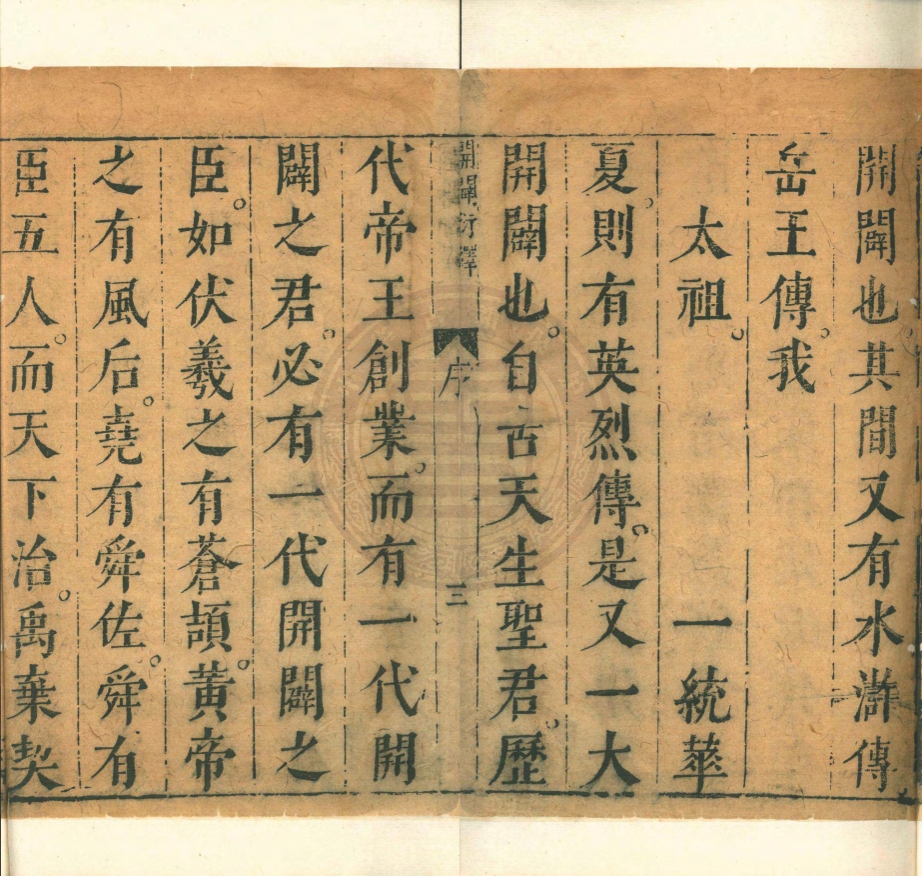 開闢也其間又有水滸傳
岳王傳。我
太祖。一統華
夏。則有英烈傳。是又一大
開闢也。自古天生聖君。歷
開闢衍繹 序 三
代帝王創業。而有一代開
闢之君。必有一代開闢之
臣。如伏羲之有蒼頡。黃帝
之有風后。堯有舜佐。舜有
臣五人。而天下治。禹棄契